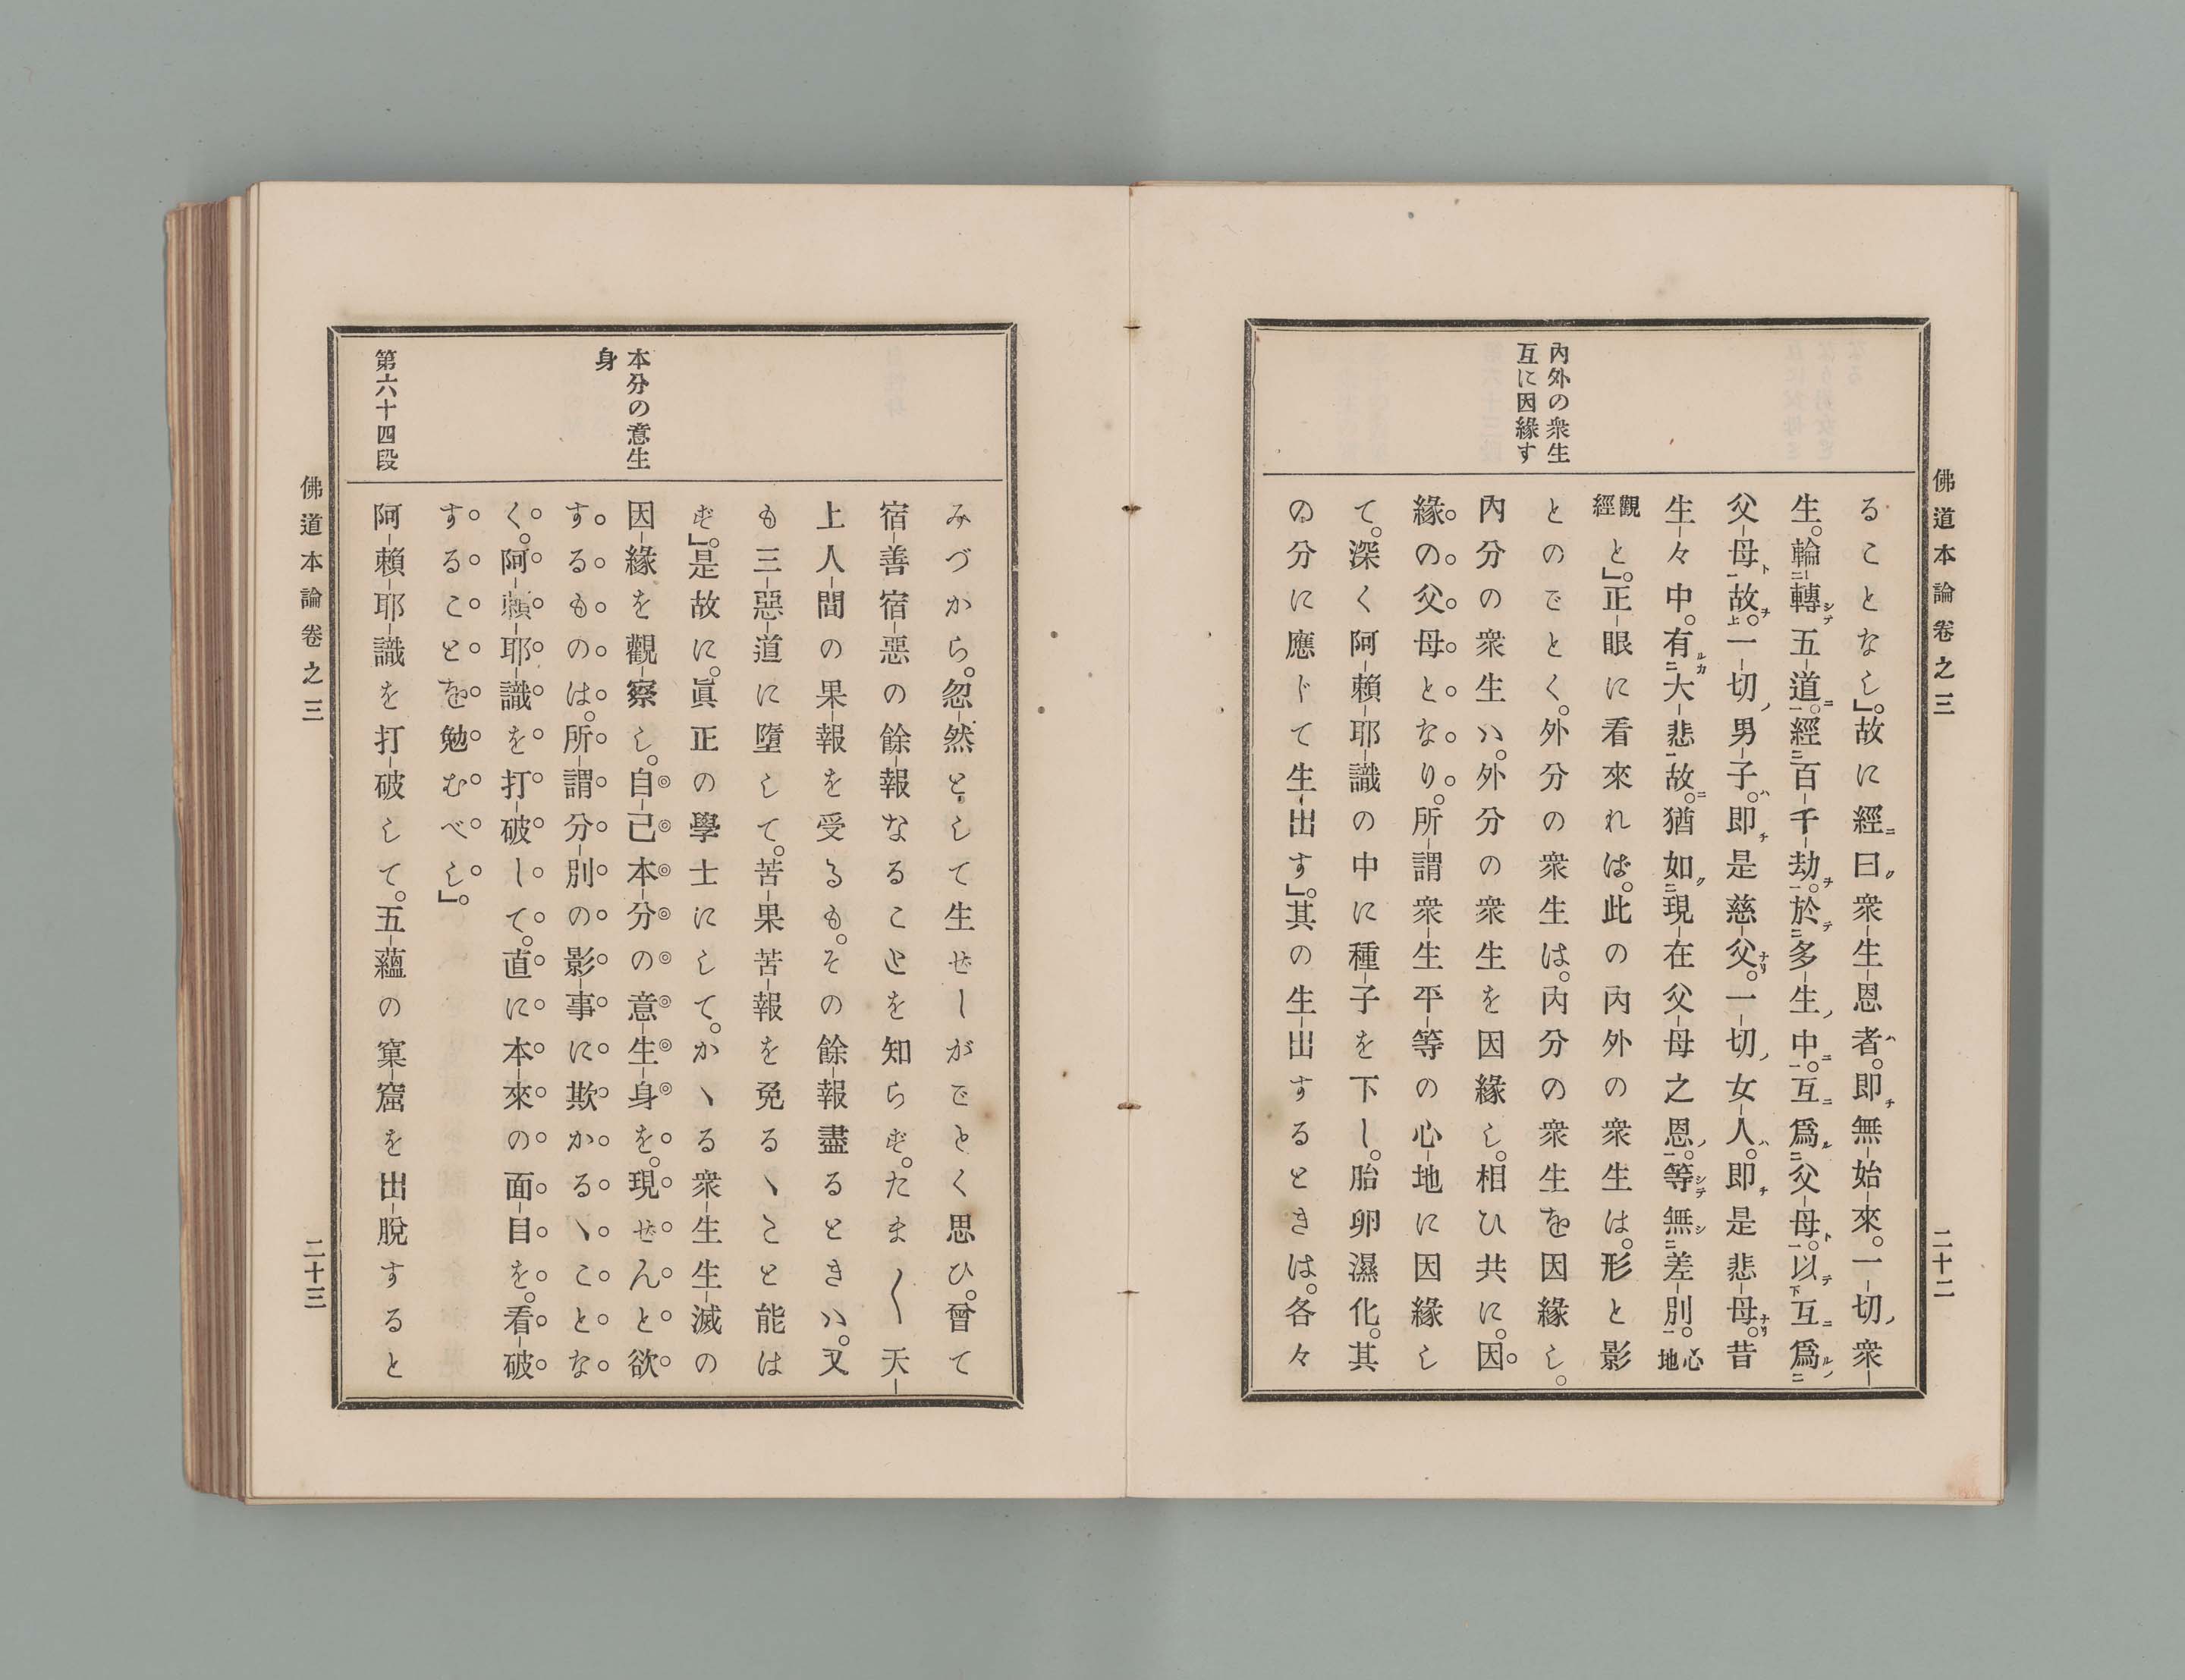 佛道本論卷之三
二十二
內外の衆生
互に因緣す
ることなし」。故に經曰衆生恩者。即無始來。一切衆
生。輪轉五道。經百千劫。於多生中。互爲父母。以互爲
父母故。一切男子。即是慈父。一切女人。即是悲母。昔
生々中。有大悲故。猶如現在父母之恩。等無差別。心地
觀經と」。正眼に看來れば。此の內外の衆生は。形と影
とのごとく。外分の衆生は。內分の衆生を因緣し。
內分の衆生ハ。外分の衆生を因緣し。相ひ共に。因
緣の父母となり。所謂衆生平等の心地に因緣し
て。深く阿賴耶識の中に種子を下し。胎卵濕化。其
の分に應じて生出す」。其の生出するときは。各々
みづから。忽然として生ぜしがごとく思ひ。曾て
宿善宿惡の餘報なることを知らず。たま〱天
上人間の果報を受るも。その餘報盡るときハ。又
も三惡道に墮して。苦果苦報を免るヽこと能は
ず」。是故に。眞正の學士にして。かヽる衆生生滅の
因緣を觀察し。自己本分の意生身を。現ぜんと欲
するものは。所謂分別の影事に欺かるヽことな
く。阿賴耶識を打破して。直に本來の面目を。看破
することを勉むべし」。
阿賴耶識を打破して。五蘊の窠窟を出脫すると
本分の意生
身
第六十四段
佛道本論卷之三
二十三